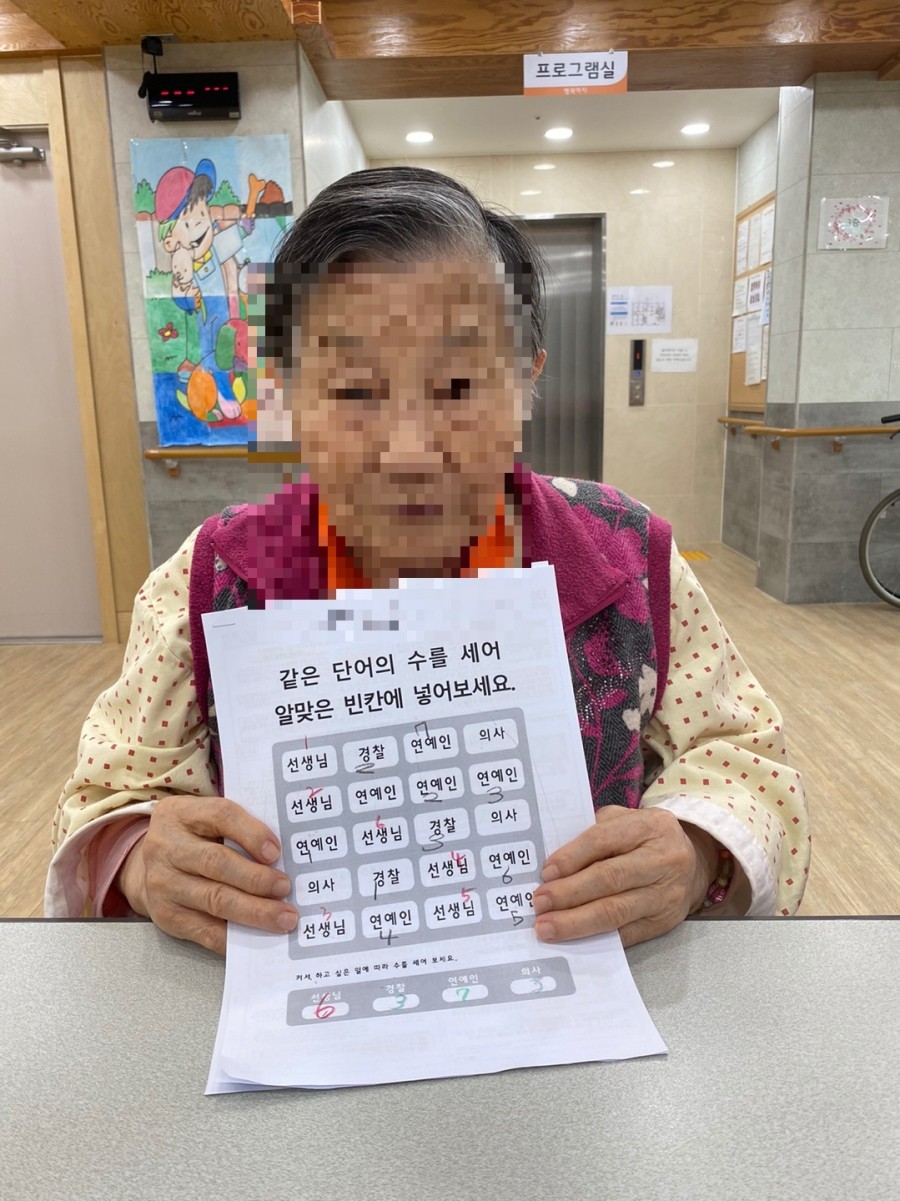 프로그램실
같은 단어의 수를 세어
알맞은 빈칸에 넣어보세요.
1 7
선생님 경찰 연예인 의사
2
선생님 연예인 연예인 연예인
2 2 3
연예인 선생님 경찰 의사
1 6 3
의사 경찰 선생님 연예인
1 4 6
선생님 연예인 선생님 연예인
3 4 5 5
커서, 하고 싶은 일에 따라 수를 세어 보세요.
선생님 경찰 연예인 의사
6 3 7 3